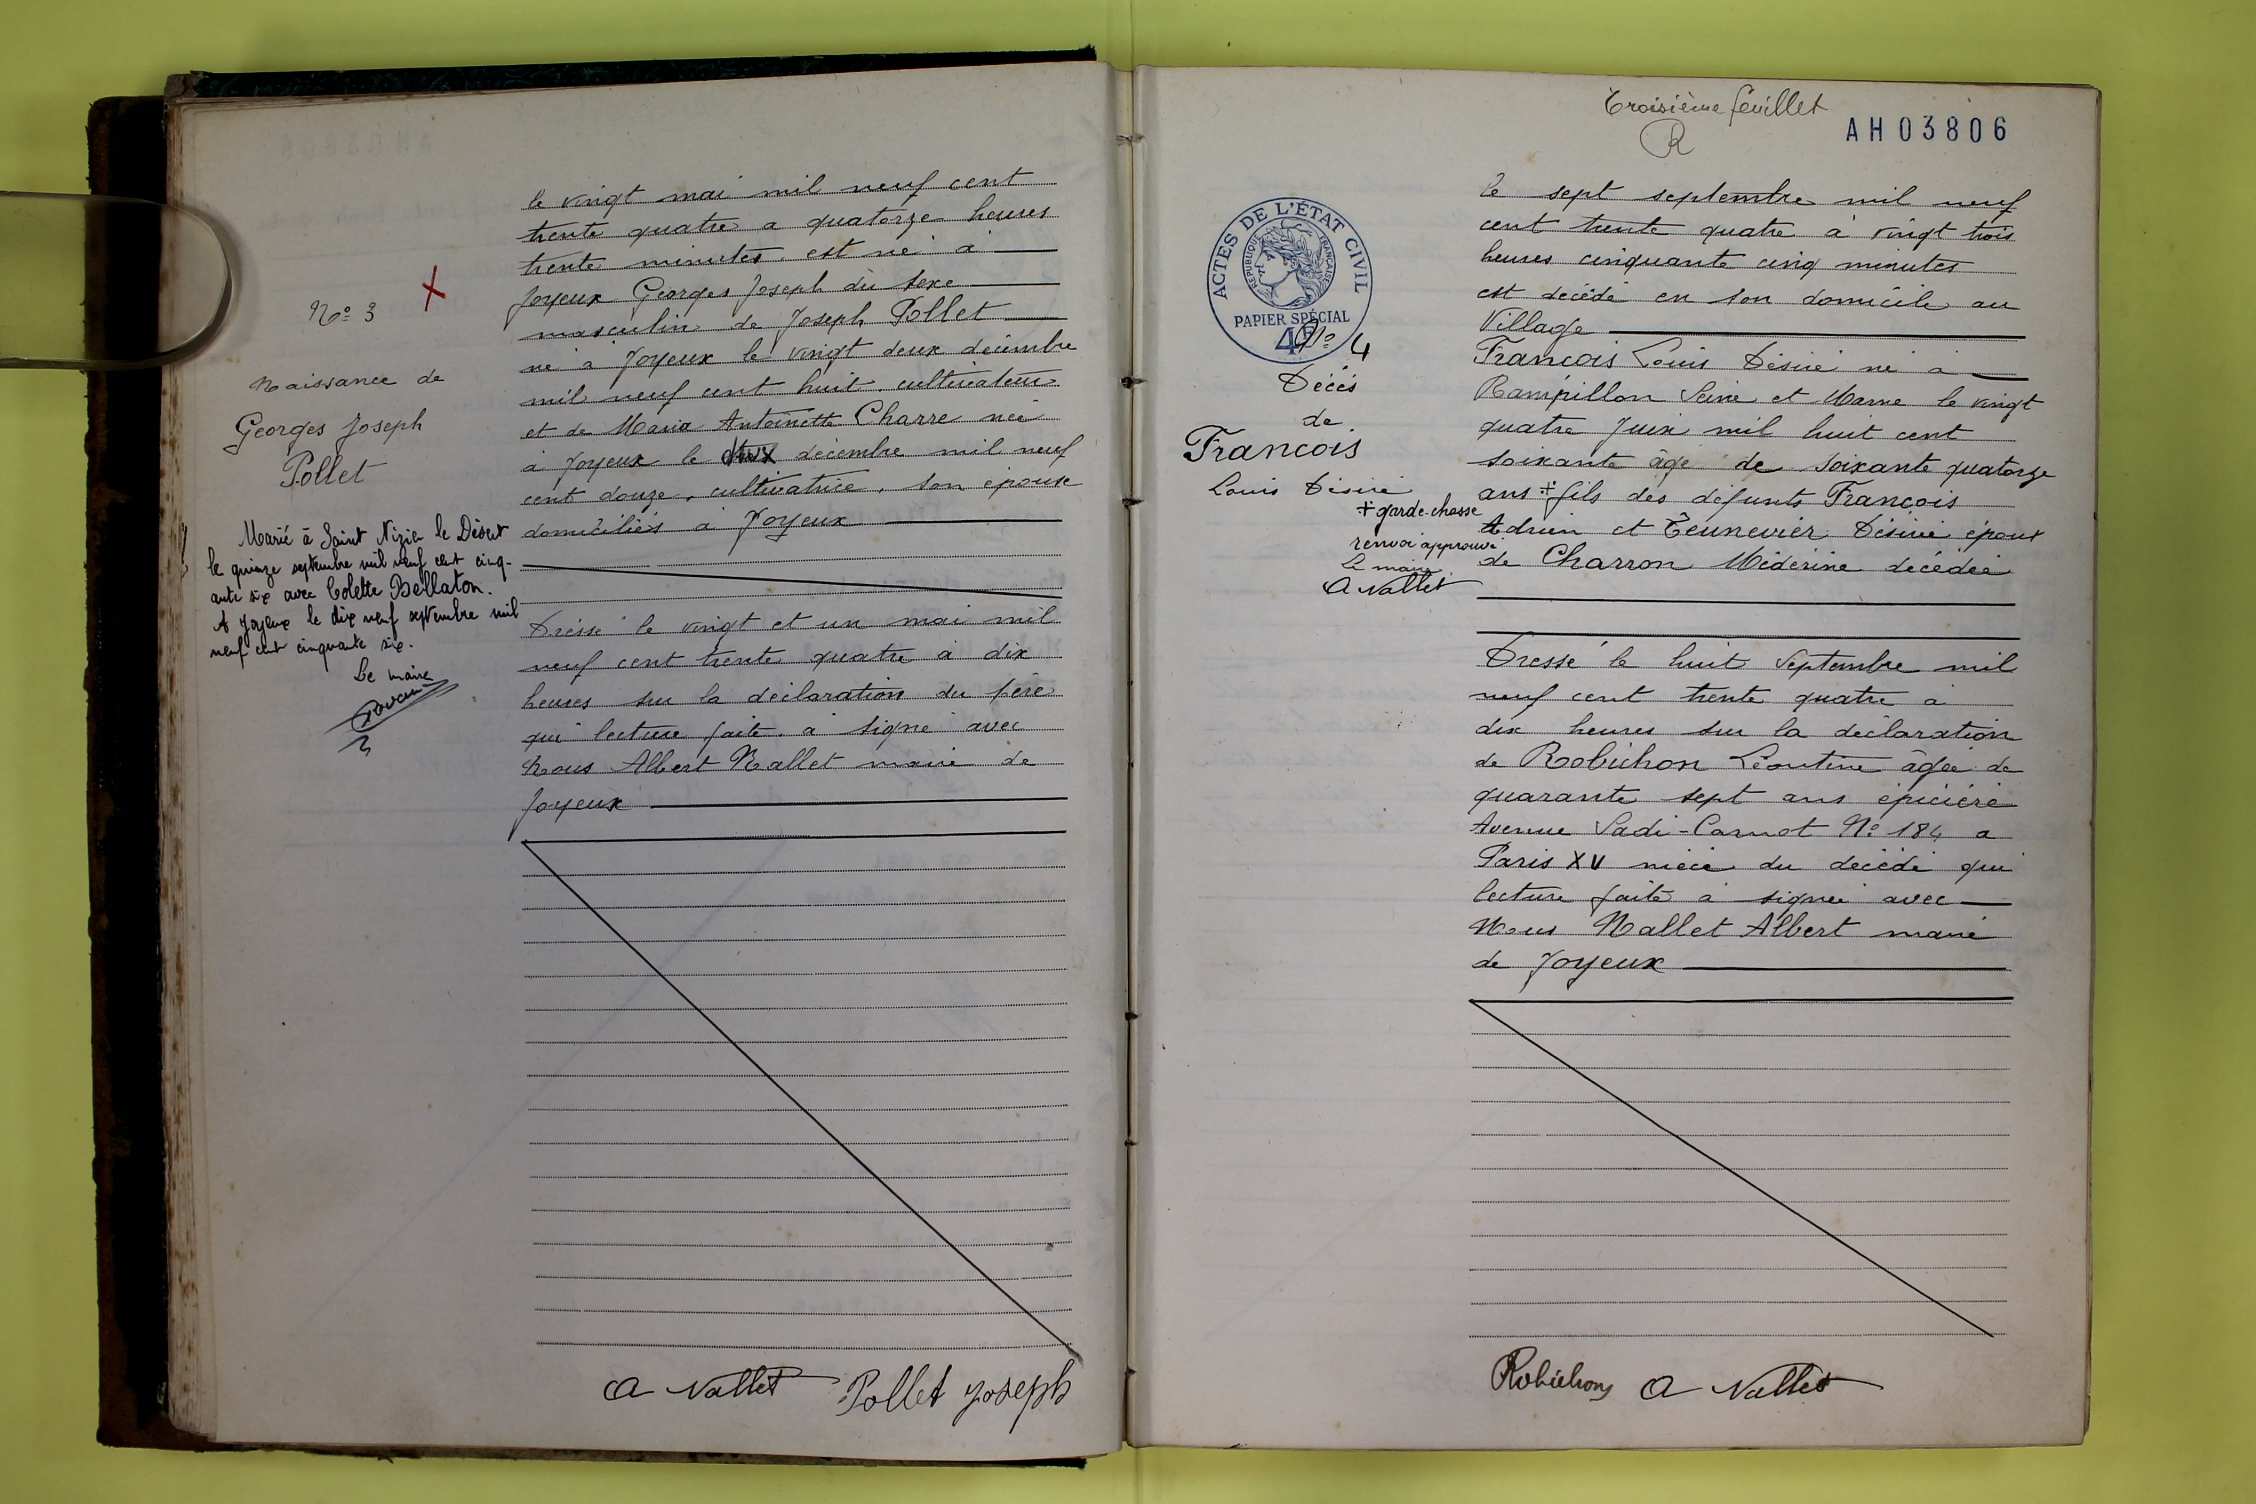 No 3
Naissance de
Georges Joseph
Pollet
Marié à Saint Nizier le Désert
le quinze septembre mil neuf cent cinq-
ante six avec Colette Bellaton.
A Joyeux le dix neuf septembre mil
neuf cent cinquante six.
Le maire
le vingt mai mil neuf cent
trente quatre a quatorze heures
trente minutes est né à
Joyeux Georges Joseph du sexe
masculin de Joseph Pollet
né à Joyeux le vingt deux décembre
mil neuf cent huit cultivateur
et de Maria Antoinette Charre née
à Joyeux le deux décembre mil neuf
cent douze, cultivatrice, son épouse
domiciliés à Joyeux
Dressé le vingt et un mai mil
neuf cent trente quatre à dix
heures sur la déclaration du père
qui lecture faite a signé avec
Nous Albert Nallet maire de
Joyeux
A Nallet Pollet Joseph
Troisième feuillet
R
AH03806
ACTES DE L'ÉTAT CIVIL
RÉPUBLIQUE FRANÇAISE
PAPIER SPÉCIAL
4F
No 4
Décés
de
Francois
Louis Désiré
+ garde-chasse
renvoi approuvé
Le maire
A Nallet
le sept septembre mil neuf
cent trente quatre à vingt trois
heures cinquante cinq minutes
est décédé en son domicile au
Village
Francois Louis Désiré né à
Rampillon Seine et Marne le vingt
quatre Juin mil huit cent
soixante âgé de soixante quatorze
ans + fils des défunts François
Adrien et Teunevier Désirée époux
de Charron Médérine décédée
Dressé le huit Septembre mil
neuf cent trente quatre à
dix heures sur la déclaration
de Robichon Léontine âgée de
quarante sept ans épicière
Avenue Sadi-Carnot No 184 a
Paris XV nièce du décédé qui
lecture faite à signée avec
Nous Nallet Albert maire
de Joyeux
Robichon A Nallet